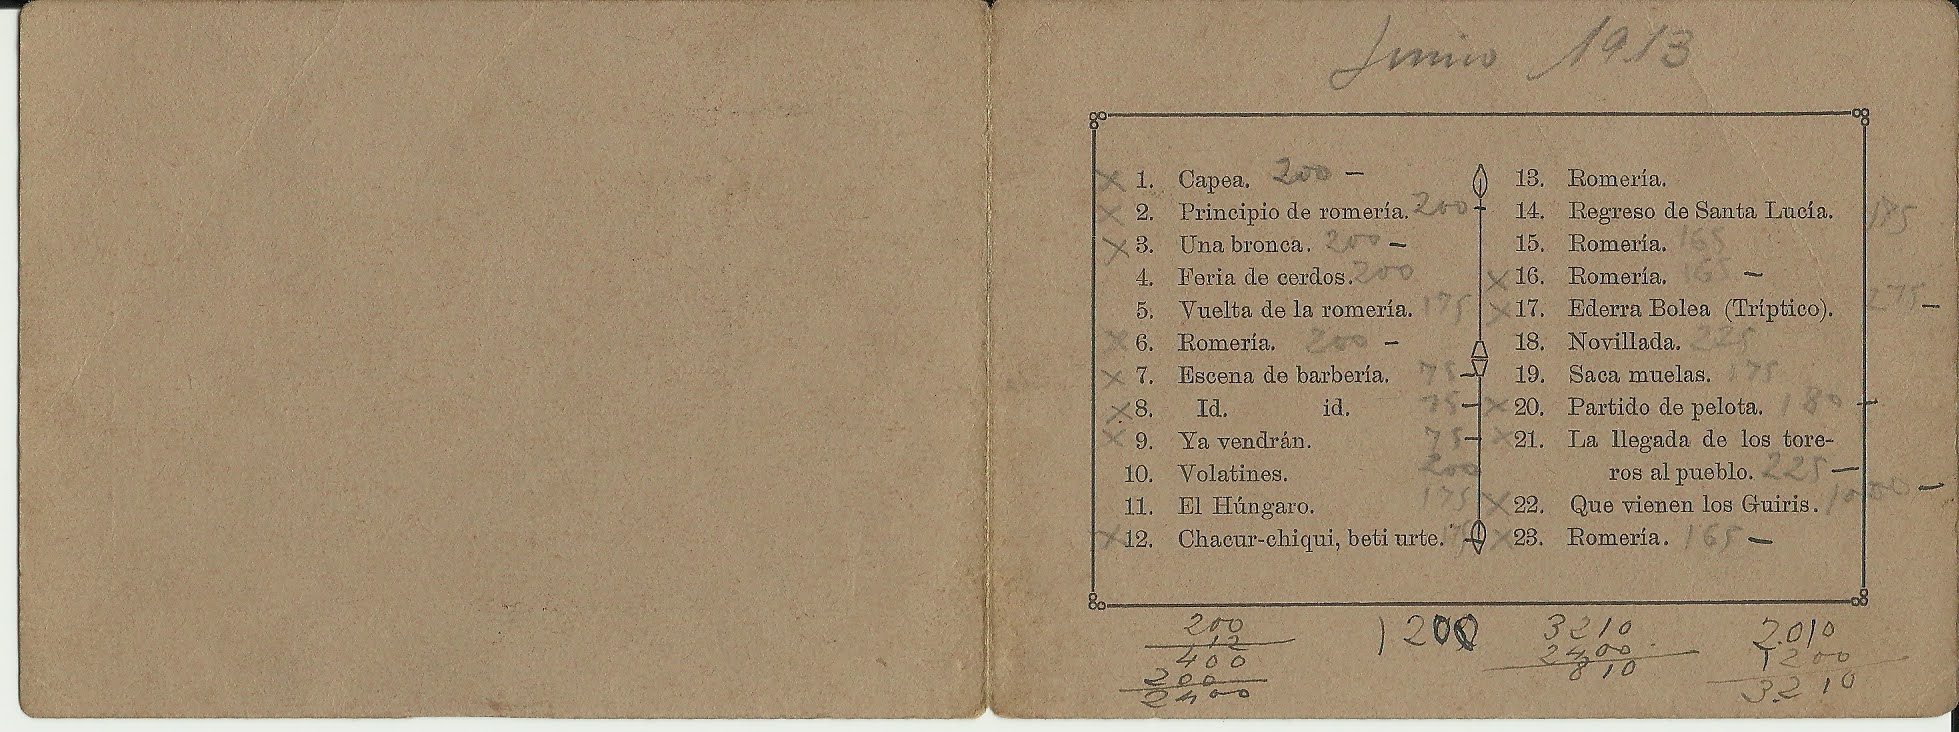 Junio 1913
× 1. Capea. 200 —
× 2. Principio de romería. 200 —
× 3. Una bronca. 200 —
4. Feria de cerdos. 200
5. Vuelta de la romería. 175
× 6. Romería. 200 —
× 7. Escena de barbería. 75 —
× 8. Id. id. 75 —
× 9. Ya vendrán. 75 —
10. Volatines. 200
11. El Húngaro. 175
× 12. Chacur-chiqui, beti urte. —
13. Romería.
14. Regreso de Santa Lucía. 175
15. Romería. 165
× 16. Romería. 165 —
× 17. Ederra Bolea (Tríptico). 275 —
18. Novillada. 225
19. Saca muelas. 175
× 20. Partido de pelota. 180 —
× 21. La llegada de los tore-
ros al pueblo. 225 —
× 22. Que vienen los Guiris. 1000 —
× 23. Romería. 165 —
200
12
400
200
2400
1200
3210
2400
810
2.010
1200
3210